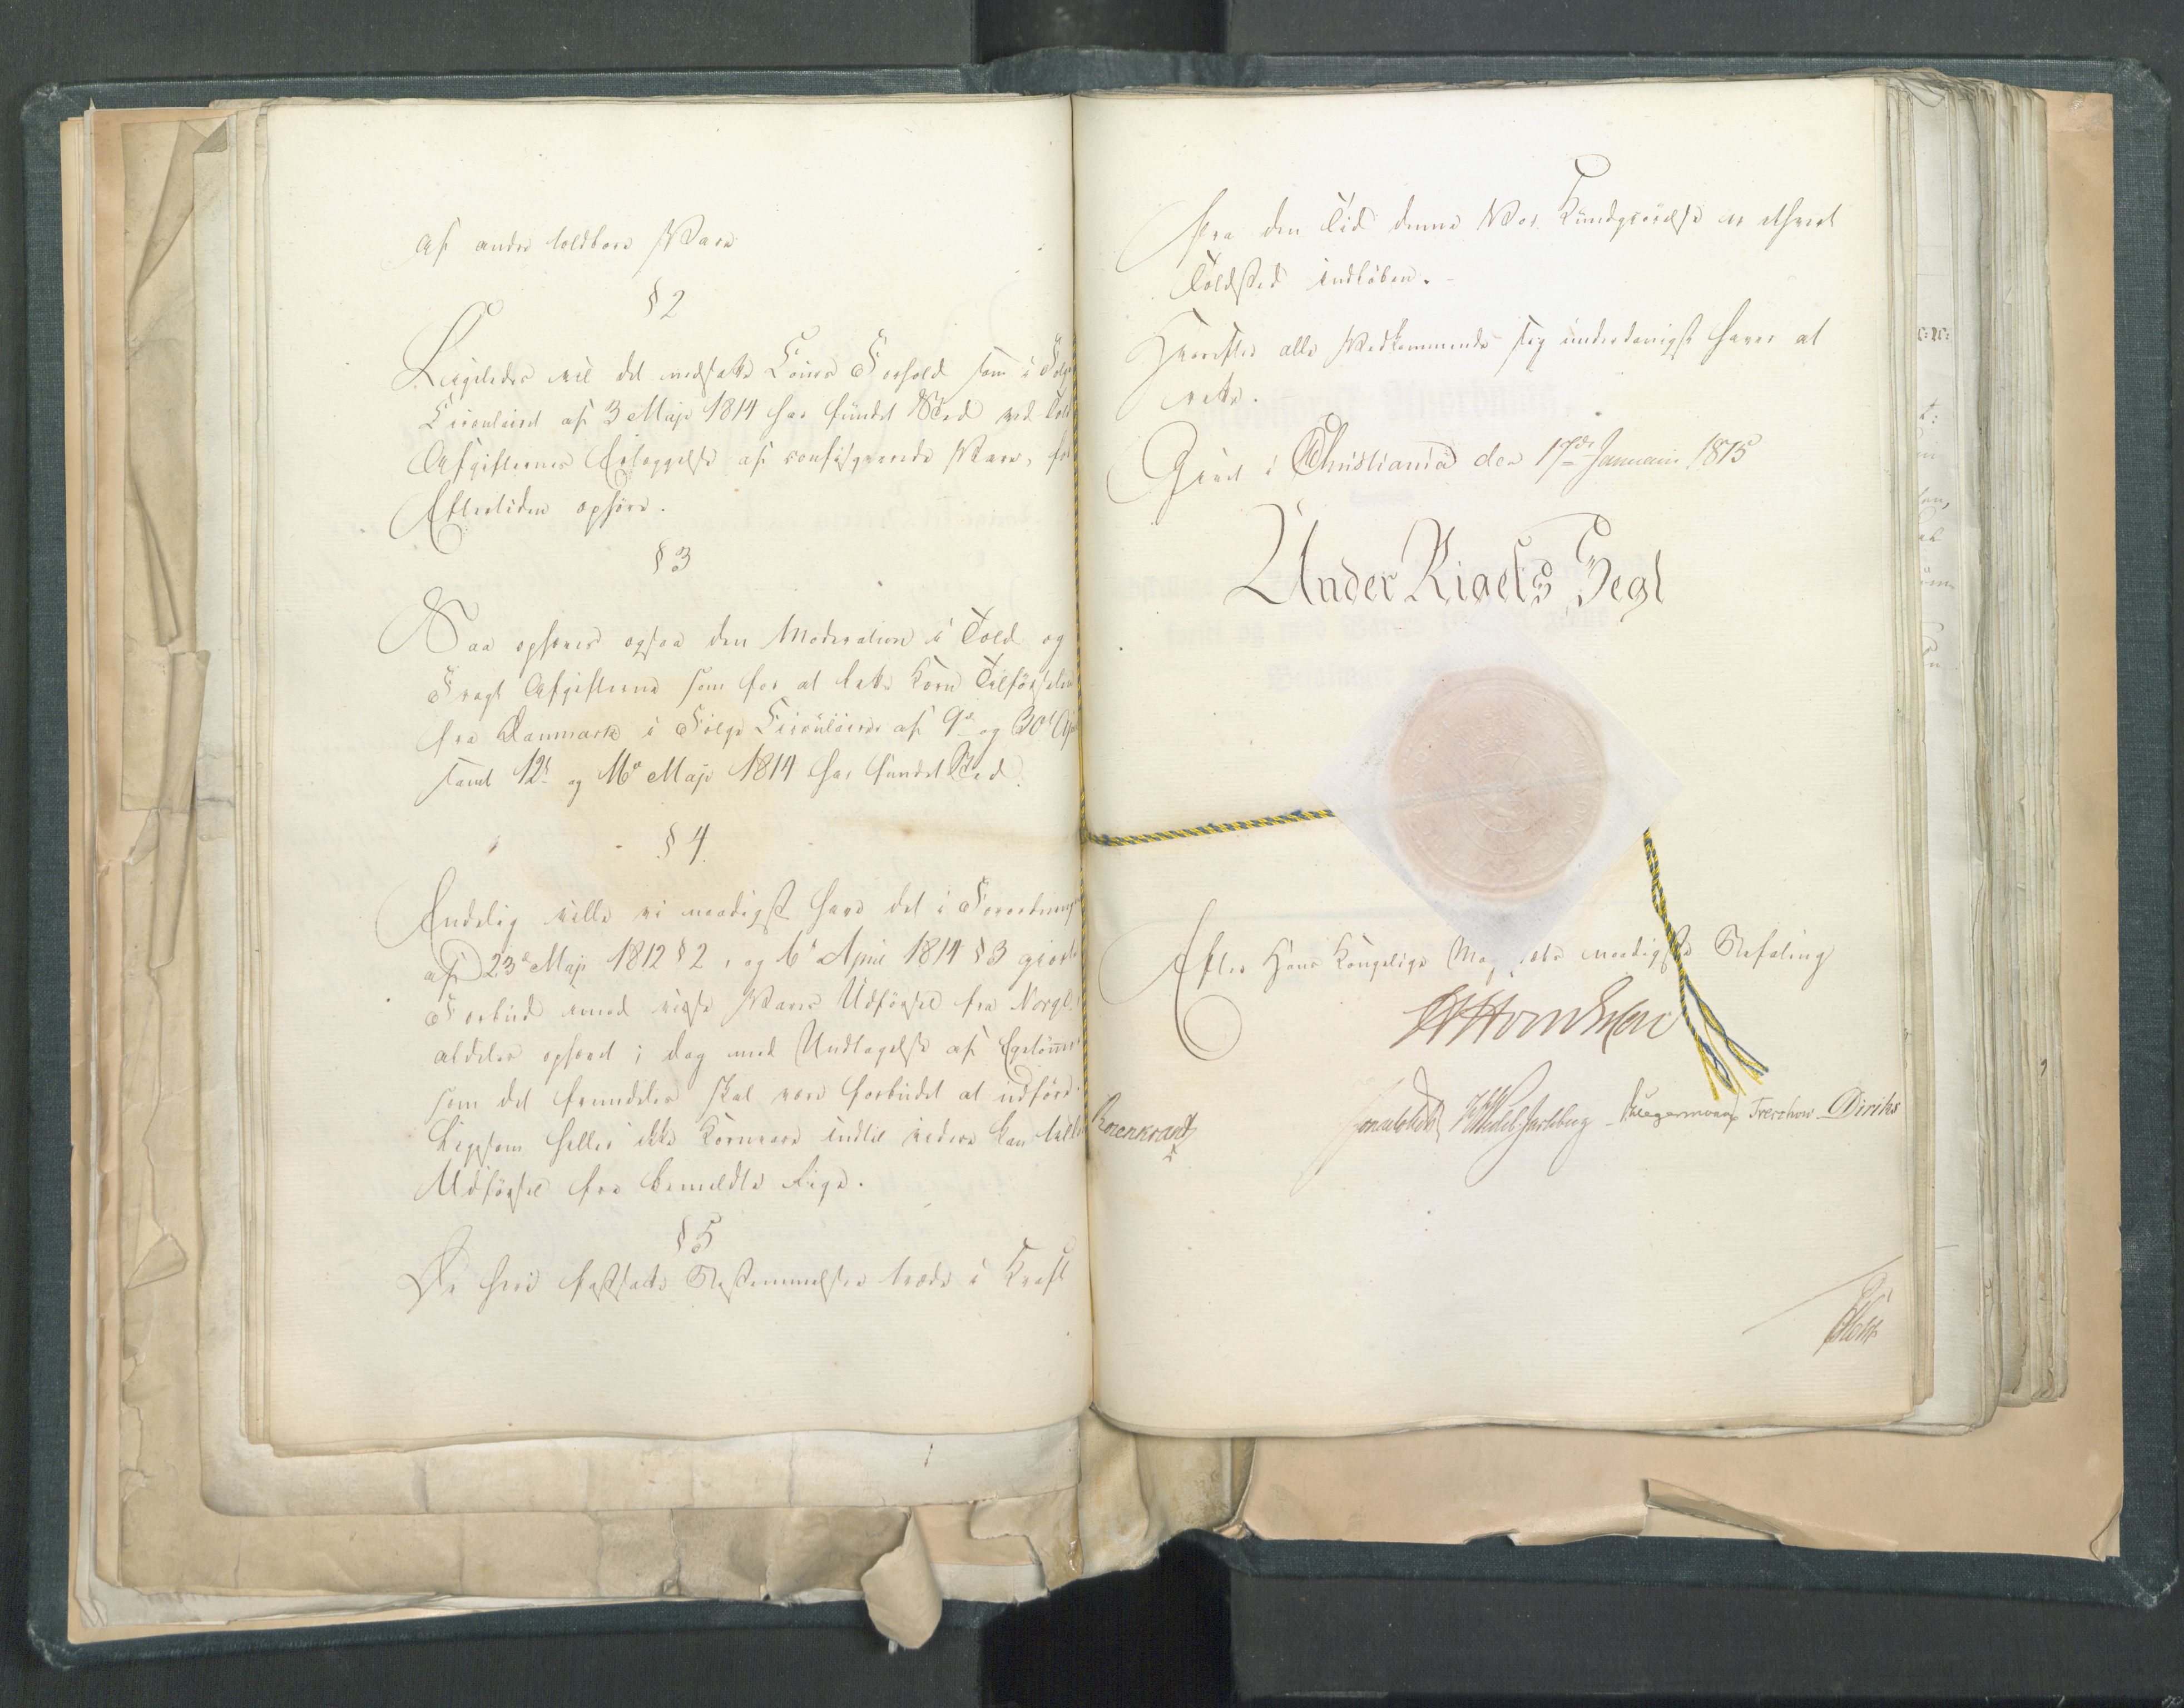 af andre toldbare Vare
§ 2
Ligeledes vil det nedsatte Cours Forhold som i Følge
Circulaire af 3 Maji 1814 har fundet Sted ved Told
Afgifternes Erlæggelse af consignerede Vare, for
Eftertiden ophøre.
§ 3
Saa ophører ogsaa den Moderation i Told og
Fragt Afgifterne som for at lette Korn Tilførselen
fra Danmark i Følge Circulairer af 9de og 30te April
samt 12te og 16de Maji 1814 har fundet Sted.
§ 4.
Endelig ville vi naadigst have det i Forordningen
af 23de Maji 1812 § 2, og 6te April 1814 § 3 giorte
Forbud imod visse Varers Udførsel fra Norge
aldeles ophævet; dog med Undtagelse af Egetømmer
som det fremdeles skal være forbudet at udføre
Ligesom heller ikke Kornvare indtil videre kan tilla
Udførsel fra bemeldte Rige.
§ 5
De heri fastsatte Bestemmelser træde i Kraft
fra den Tid denne Vor Kundgiørelse er ethvert
Toldsted indløben.
Hvorefter alle Vedkommende sig underdanigst haver at
rette.
Givet i Christiania den 17de Januarii 1815
Under Rigets Segl
Efter Hans Kongelige Majestæts naadigste Befaling
Rosenkrantz Sommerhielm Wedel-Jarlsberg Kriegermann Treschow Diriks